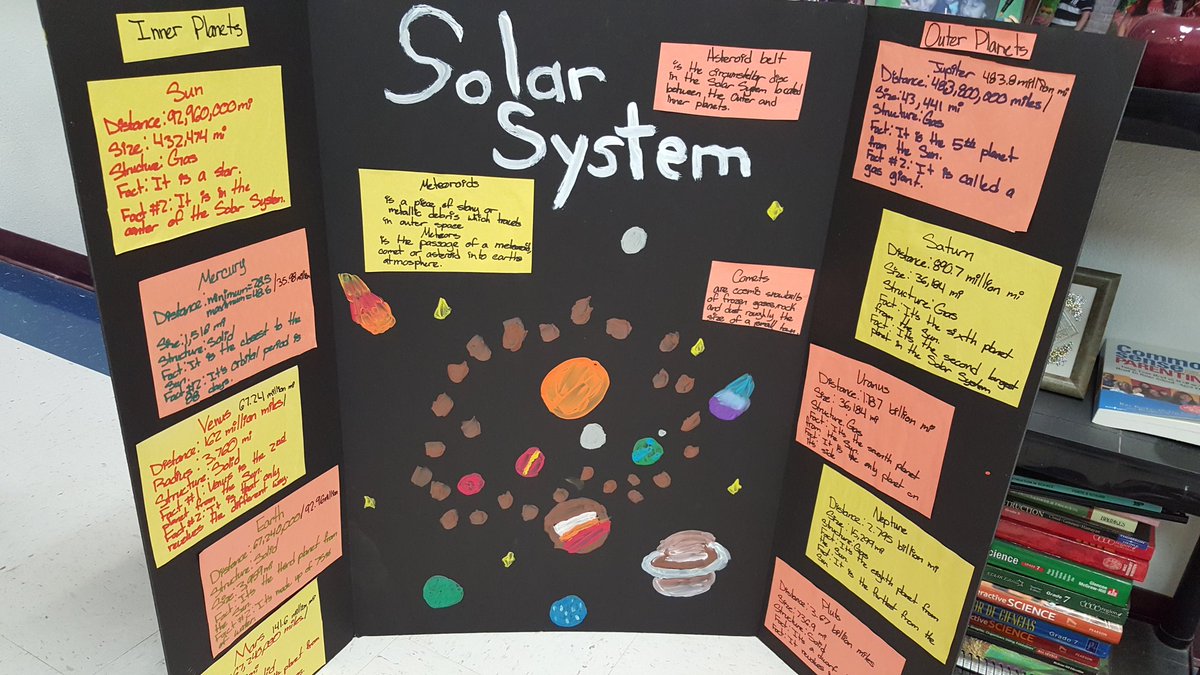 Inner Planets
Sun
Distance: 92,960,000 mi
Size: 432,474 mi
Structure: Gas
Fact: It is a star.
Fact #2: It is in the
center of the Solar System.
Mercury
Distance: minimum=28.5
maximum=43.6
Size: 1,516 mi
Structure: Solid
Fact: It is the closest to the
Sun.
Fact #2: It's orbital period is
88 days.
Venus 67.24 million mi
Distance: 162 million miles/
Radius: 3,760 mi
Structure: Solid
Fact #1: Venus is the 2nd
Planet from the Sun.
Fact #2: It is that only
revolves the different way.
Earth
Distance: 67,240,000/92.96 million
Structure: Solid
Size: 3,959 mi
Fact: It's the third planet from
Sun
Fact #2: It's made up of 75%
Mars 141.6 million mi
67,240,000 miles/
planet from
Solar
System
Meteoroids
is a piece of stony or
metallic debris which travels
in outer space
Meteors
is the passage of a meteoroid,
comet or asteroid into earths
atmosphere.
Asteroid belt
is the circumstellar disc
in the Solar System located
between the Outer and
Inner planets.
Comets
are cosmic snowballs
of frozen gases, rock
and dust roughly the
size of a small town
Outer Planets
Jupiter 483.8 million mi
Distance: 483,800,000 miles/
Size: 43,441 mi
Structure: Gas
Fact: It is the 5th planet
from the Sun.
Fact #2: It is called a
gas giant.
Saturn
Distance: 890.7 million mi
Size: 36,184 mi
Structure: Gas
Fact: It's the sixth planet
from the Sun.
Fact: It's the second largest
planet in the Solar System
Uranus
Distance: 1.787 billion mi
Size: 36,184 mi
Structure: Gas
Fact: It's the seventh planet
from the Sun.
Fact: It is the only planet on
its side
Neptune
Distance: 2.795 billion mi
Size: 15,299 mi
Structure: Gas
Fact: It's the eighth planet from
the Sun
Fact: It is the furthest from the
Sun
Pluto
Distance: 3.67 billion miles
Structure: Solid
Fact: It's a dwarf
Fact: It revolves
Common
Sense
PARENTING
Science
Grade 7
Glencoe
McGraw-Hill
Interactive SCIENCE
Grade 7
DE CIENCIAS
SCIENCE
Grade 7